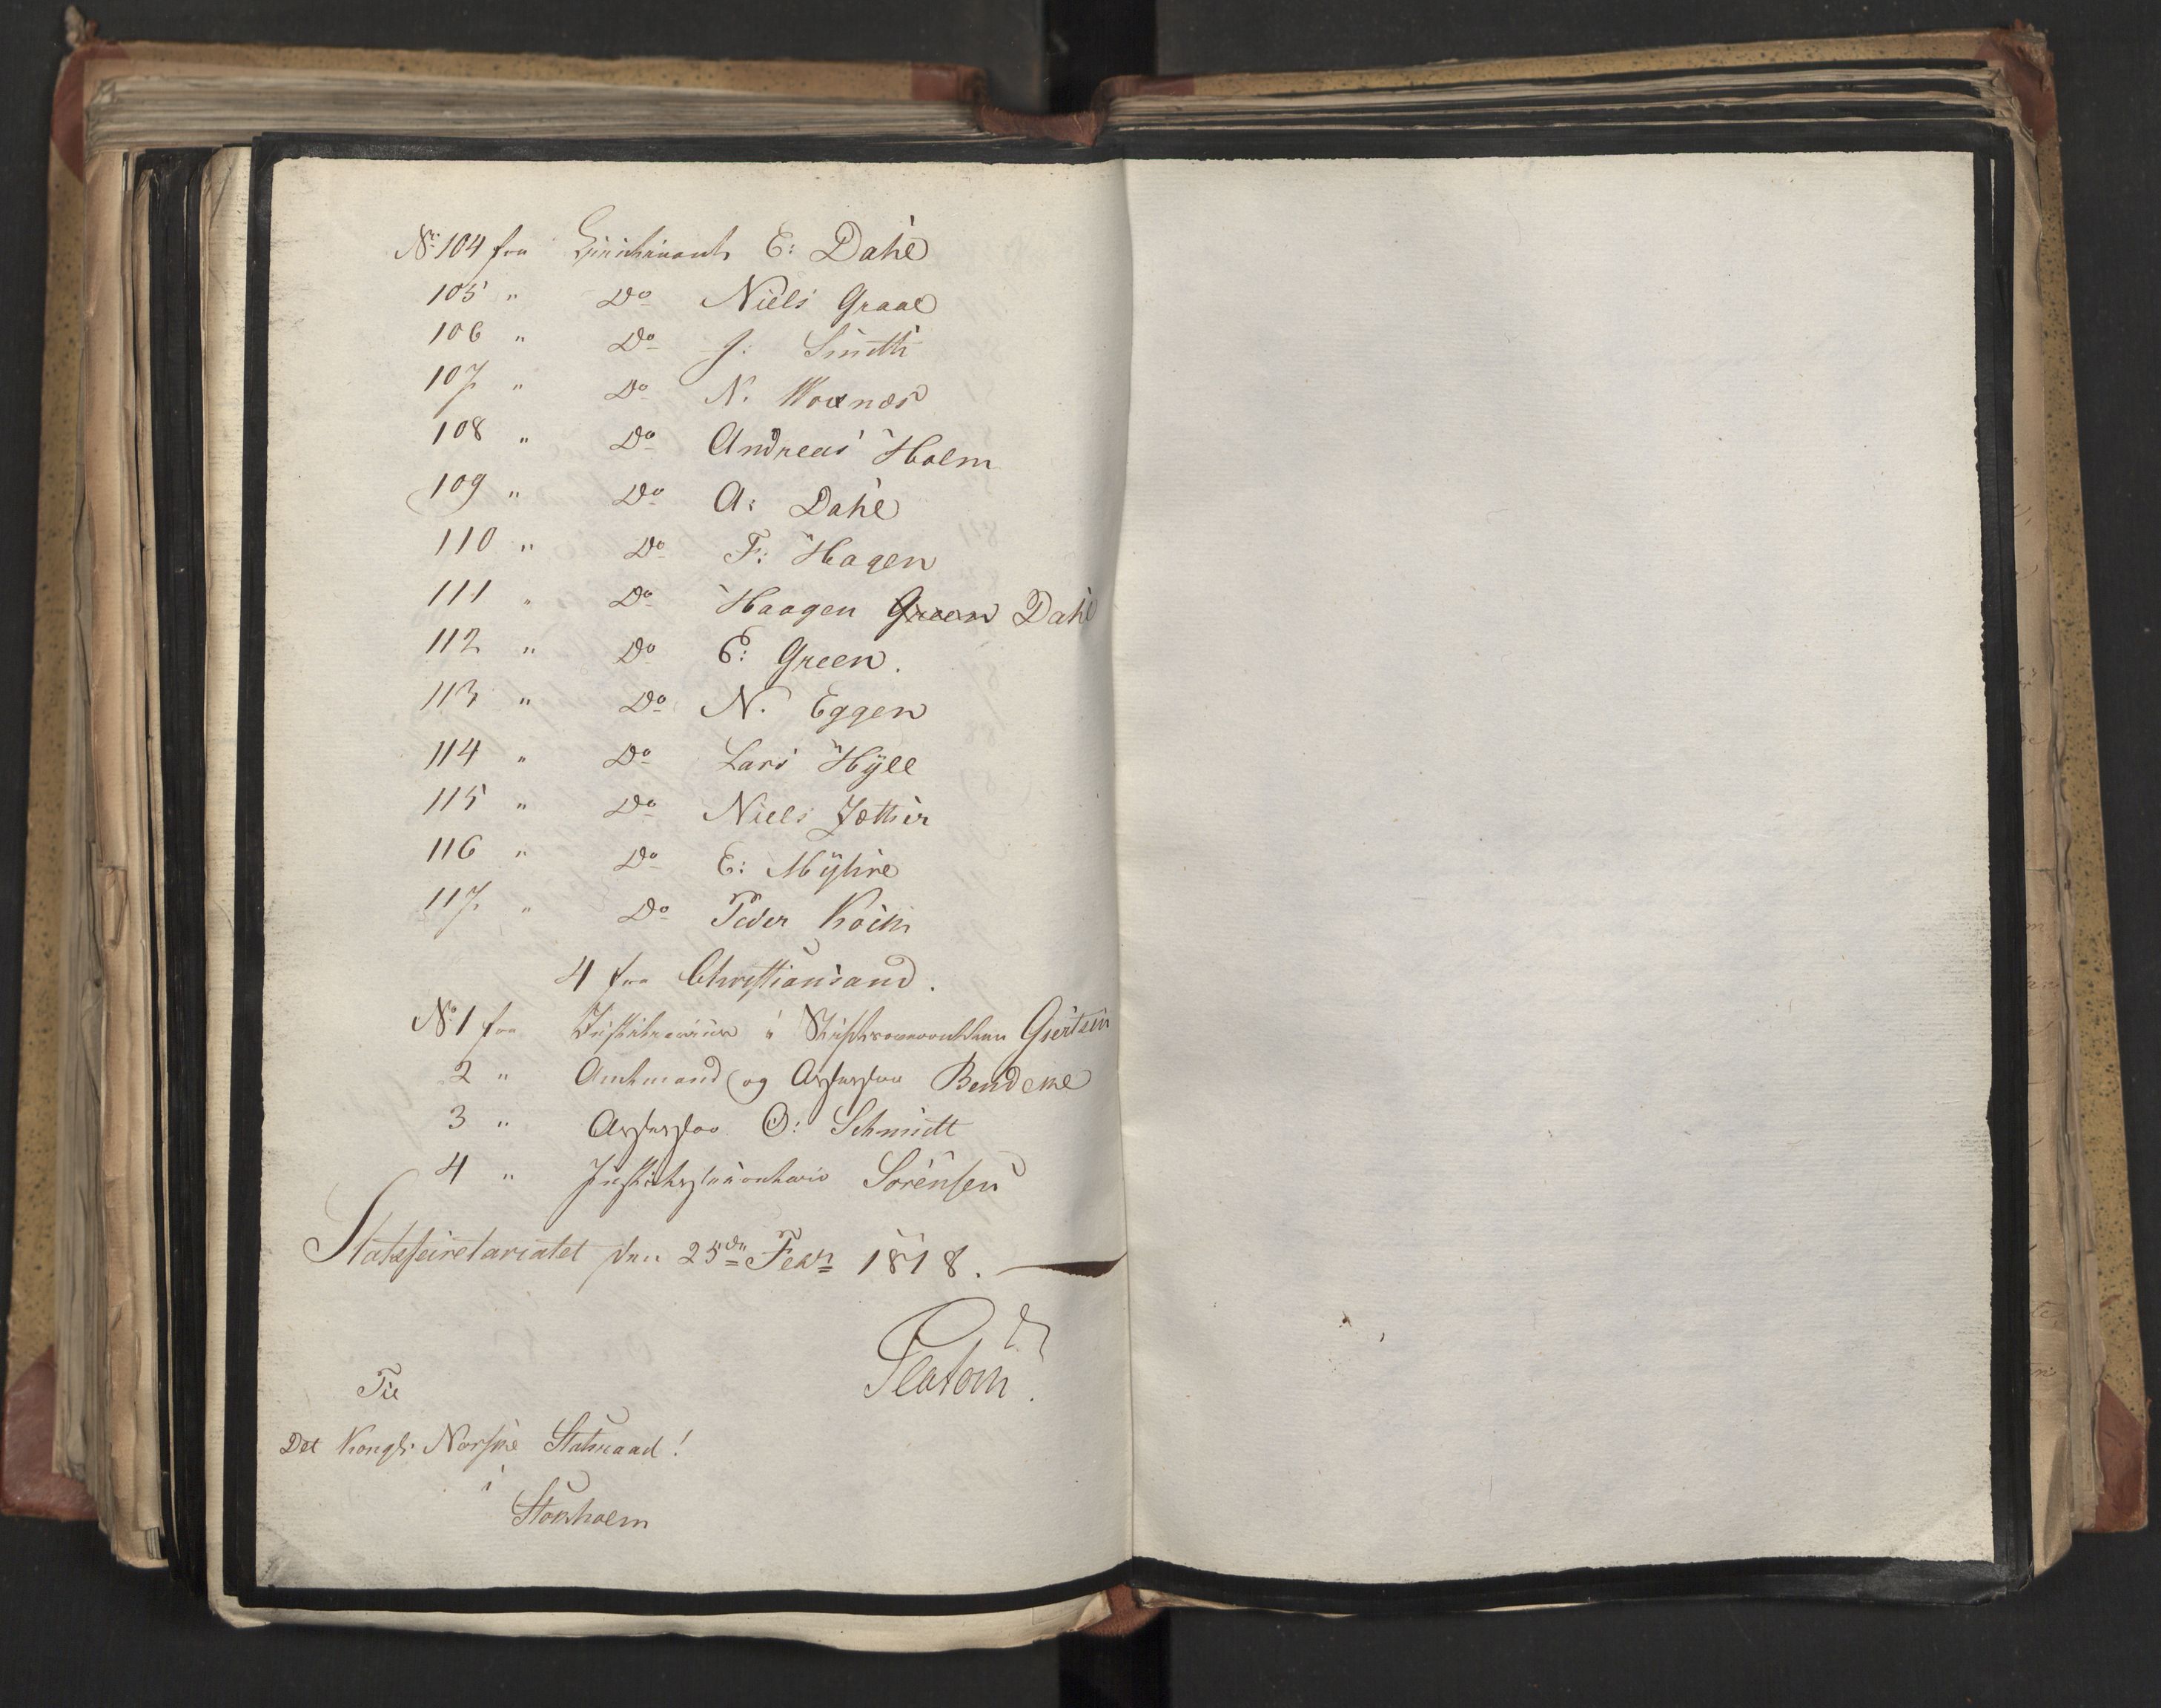 No 104 fra Lieutinant E: Dahl
105 " Do Niels Graae
106 " Do J: Smith
107 " Do N. Woxnæs
108 " Do Andreas Holm
109 " Do A: Dahl
110 " Do F: Hagen
111 " Do Haagen Green Dahl
112 " Do E: Green.
113 " Do N. Eggen
114 " Do Lars Hÿll
115 " Do Niels
116 " Do E: Mÿhre
117 " Do Peder Koch
4 fra Christiansand.
No 1 fra Justitiarius i Stiftsoverretten Giertsen
2 " Amtmand og Assessor Bendeke
3 " Assessor O: Schmidt
4 " Justitssecretair Sørensen
Statssecretariatet den 25de Febr 1818.
Platou
Til
Det Kongl: Norske Statsraad!
i
Stokholm